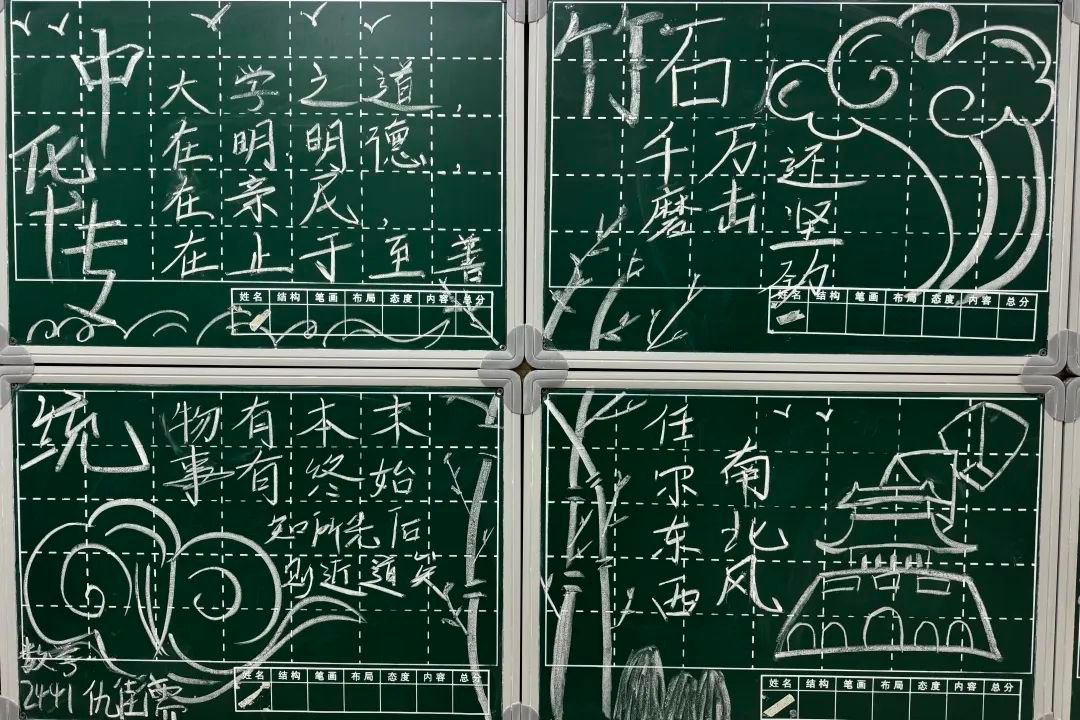 中华传
大学之道，
在明明德，
在亲民，
在止于至善
姓名 结构 笔画 布局 态度 内容 总分
竹石
千磨
万击
还坚劲
姓名 结构 笔画 布局 态度 内容 总分
统
物有本末
事有终始
知所先后
则近道矣
2441
姓名 结构 笔画 布局 态度 内容 总分
任尔东西
南北风
姓名 结构 笔画 布局 态度 内容 总分